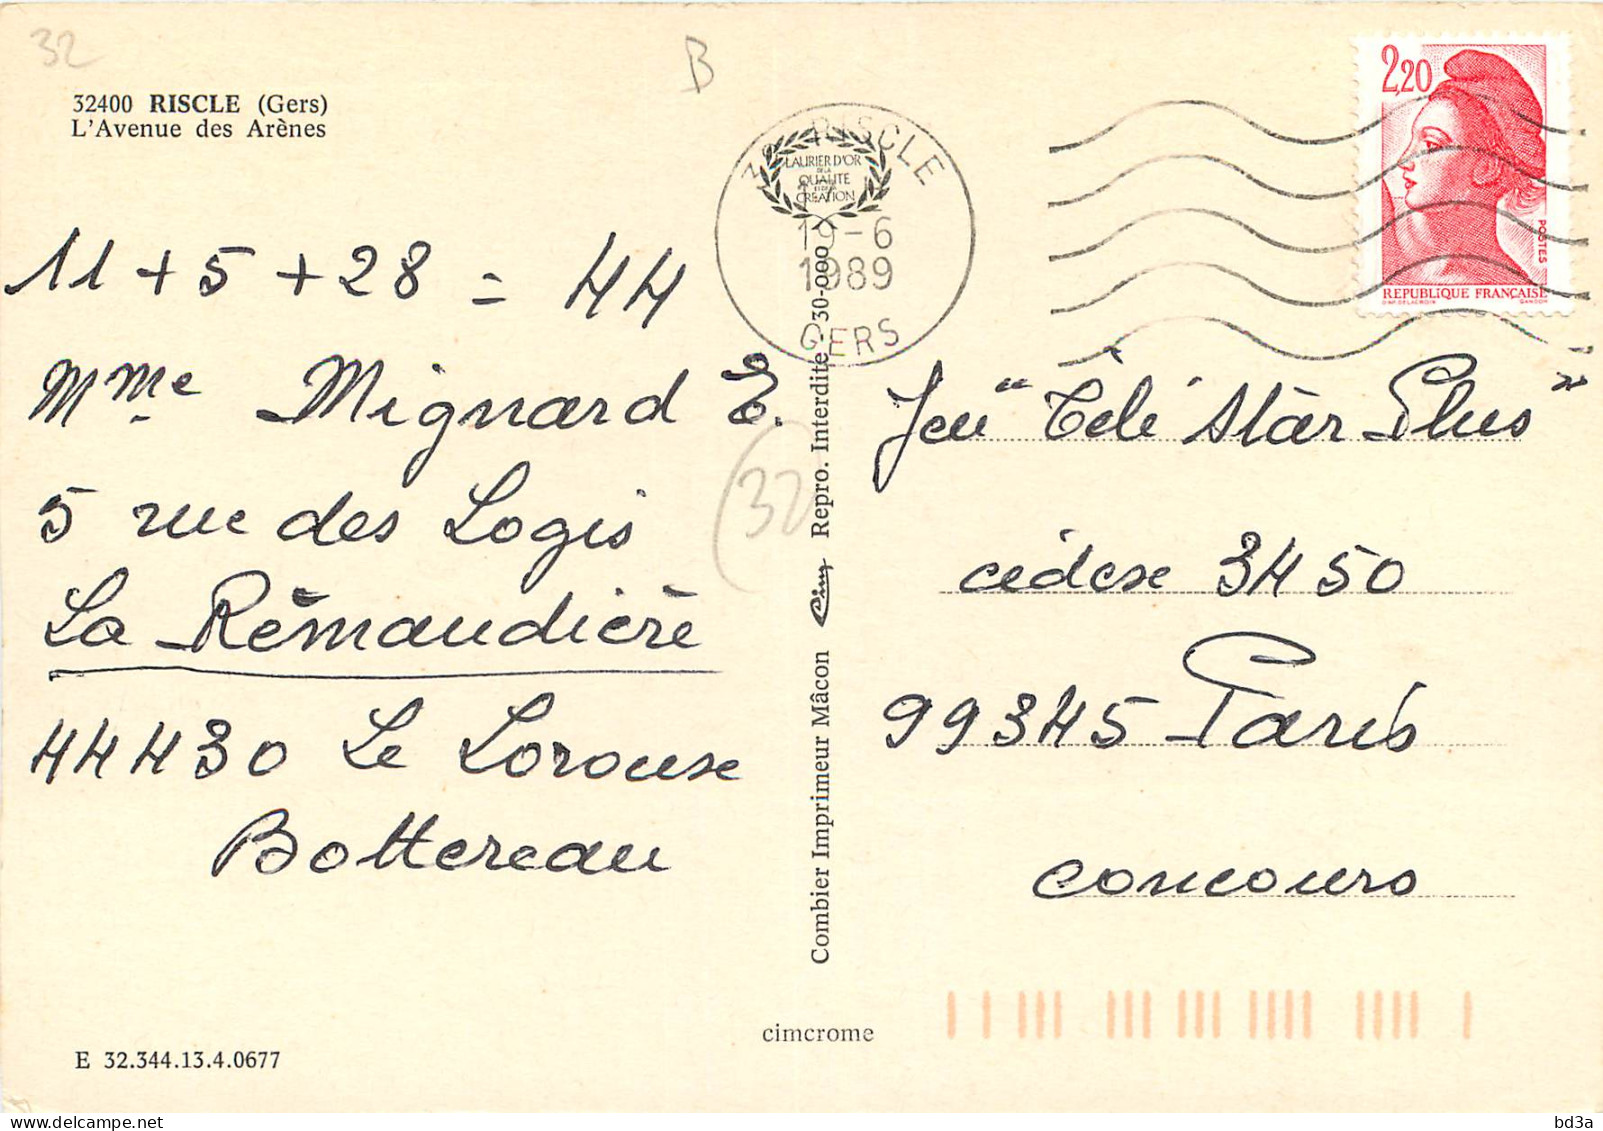 32
B
32400 RISCLE (Gers)
L'Avenue des Arènes
11 + 5 + 28 = 44
Mme Mignard E.
5 rue des Logis
La Rémaudière
44430 Le Lorouse
Bottereau
(32)
E 32.344.13.4.0677
RISCLE
LAURIER D'OR
DE LA
QUALITE
CREATION
19-6
1989
GERS
Combier Imprimeur Mâcon Cim Repro. Interdite - 30-000
cimcrome
2,20
POSTES
REPUBLIQUE FRANÇAISE
D'AP. DELACROIX GANDON
Jeu "Télé Star Plus"
cédex 3450
99345 Paris
concours
delcampe.net
bd3a